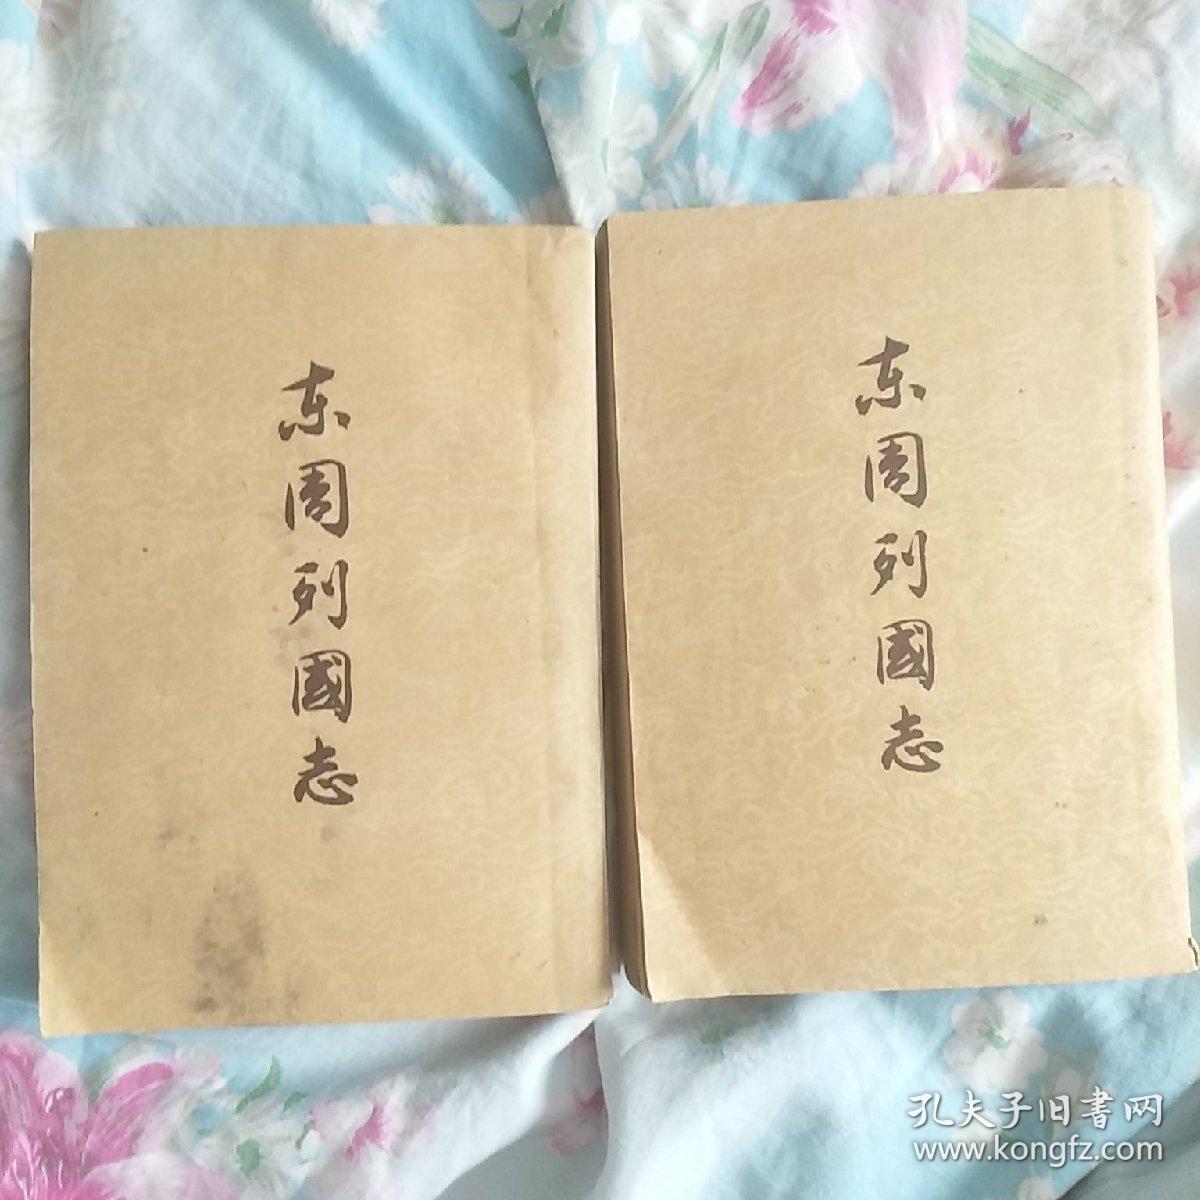 东周列國志
东周列國志
孔夫子旧書网
www.kongfz.com